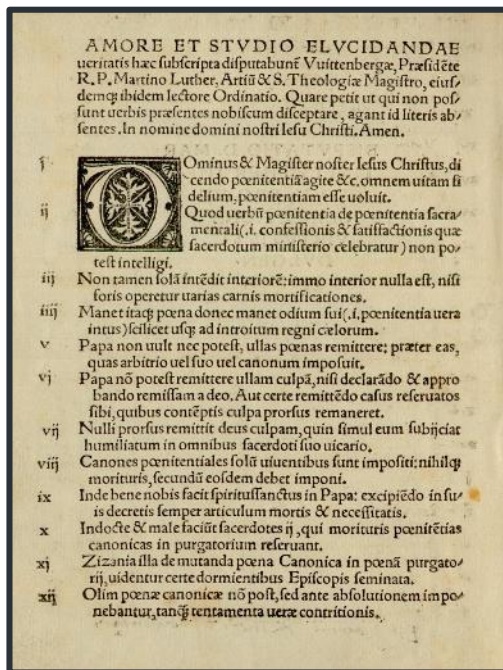 AMORE ET STVDIO ELVCIDANDAE
ueritatis hæc subscripta disputabunt̃ Vuittenbergæ, Præsidẽte
R. P. Martino Luther, Artiũ & S. Theologiæ Magistro, eius/
demq̃ ibidem lectore Ordinatio. Quare petit ut qui non pos/
sunt uerbis præsentes nobiscum disceptare, agant id literis ab/
sentes. In nomine domini nostri Iesu Christi. Amen.
i DOminus & Magister noster Iesus Christus, di
cendo pœnitentiã agite &c. omnem uitam fi
delium, pœnitentiam esse uoluit.
ij Quod uerbũ pœnitentia de pœnitentia sacra/
mentali (.i. confessionis & satisfactionis quæ
sacerdotum ministerio celebratur) non po/
test intelligi.
iij Non tamen solã intẽdit interiorẽ: immo interior nulla est, nisi
foris operetur uarias carnis mortificationes.
iiij Manet itaq̃ pœna donec manet odium sui (.i. pœnitentia uera
intus) scilicet usq̃ ad introitum regni cælorum.
v Papa non uult nec potest, ullas pœnas remittere: præter eas,
quas arbitrio uel suo uel canonum imposuit.
vj Papa nõ potest remittere ullam culpã, nisi declarãdo & appro
bando remissam a deo. Aut certe remittẽdo casus reseruatos
sibi, quibus contẽptis culpa prorsus remaneret.
vij Nulli prorsus remittit deus culpam, quin simul eum subijciat
humiliatum in omnibus sacerdoti suo uicario.
viij Canones pœnitentiales solũ uiuentibus sunt impositi: nihilq̃
morituris, secundũ eosdem debet imponi.
ix Inde bene nobis facit spiritussanctus in Papa: excipiẽdo in su/
is decretis semper articulum mortis & necessitatis.
x Indocte & male faciũt sacerdotes ij, qui morituris pœnitẽtias
canonicas in purgatorium reseruant.
xj Zizania illa de mutanda pœna Canonica in pœnã purgato/
rij, uidentur certe dormientibus Episcopis seminata.
xij Olim pœnæ canonicæ nõ post, sed ante absolutionem impo/
nebantur, tanq̃ tentamenta ueræ contritionis.